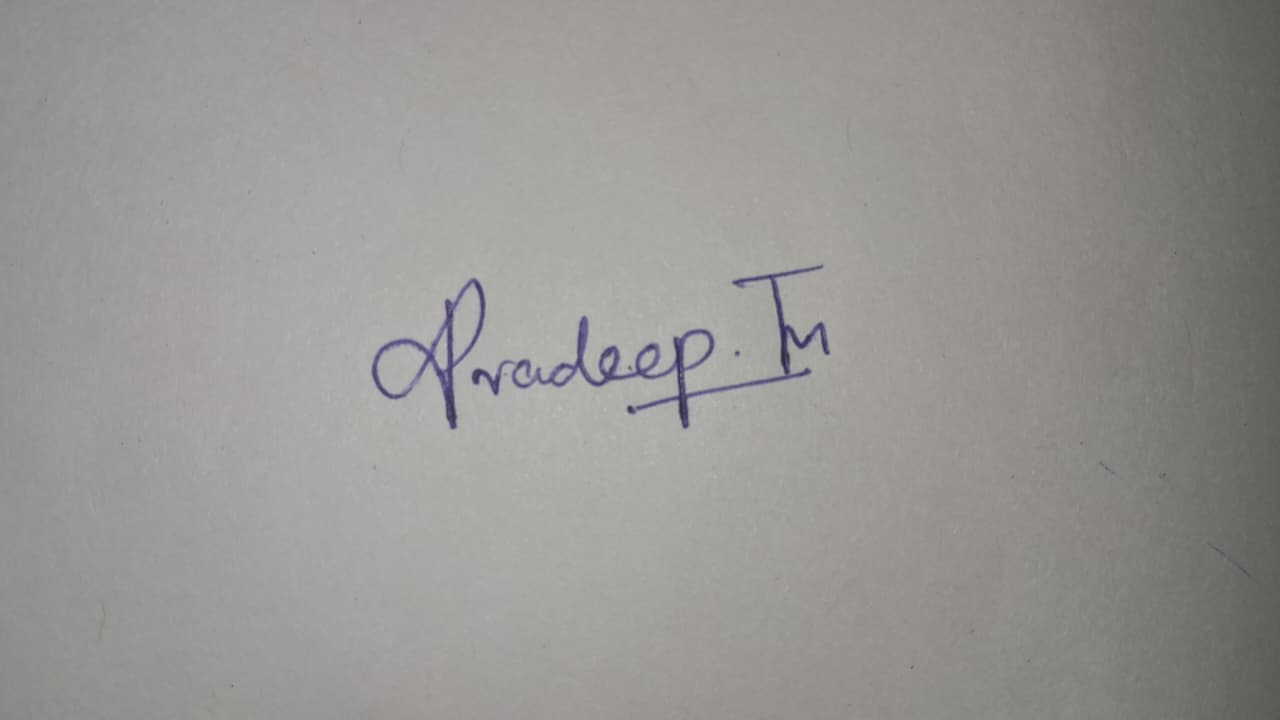 Pradeep. Tm